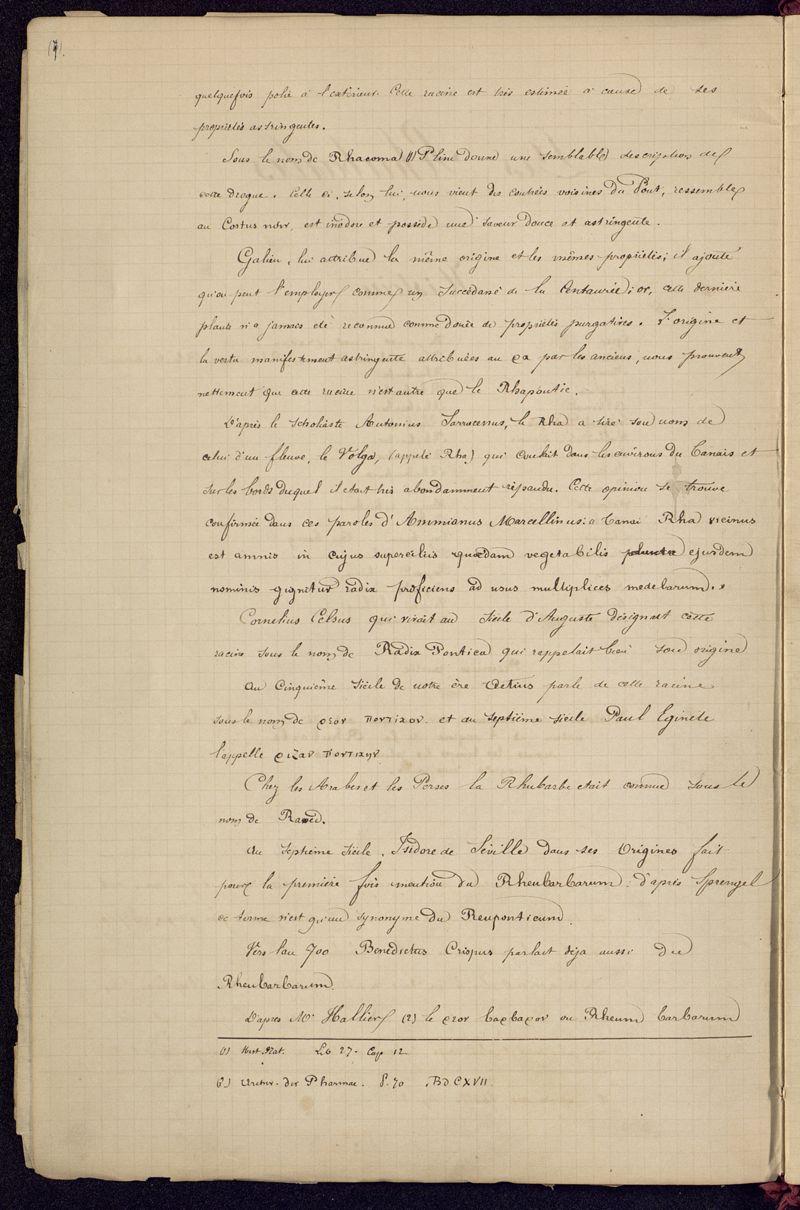 (7).
quelquefois polie à l'extérieur. Cette racine est très estimée à cause de ses
propriétés astringentes.
Sous le nom de Rhacoma (1) Pline donne une semblable description de
cette drogue. Celle ci, selon lui, nous vient des contrées voisines du Pont, ressemble
au Costus noir, est inodore et possède une saveur douce et astringente.
Galien, lui attribue la même origine et les mêmes propriétés; il ajoute
qu'on peut l'employer comme un succédané de la Centaurée; or, cette dernière
plante n'a jamais été reconnue comme douée de propriétés purgatives. L'origine et
la vertu manifestement astringente attribuées au ρα par les anciens, nous prouvent
nettement que cette racine n'est autre que le Rhapontic.
D'après le scholiaste Antonius Sarracenus, le Rha a tiré son nom de
celui d'un fleuve, le Volga, (appelé Rha) qui coulait dans les environs du Tanais et
sur les bords duquel il était très abondamment répandu. Cette opinion se trouve
confirmée dans ces paroles d'Ammianus Marcellinus: « Tanai Rha vicinus
est amnis in cujus superciliis quædam vegetabilis ejusdem
nominis gignitur radix proficiens ad usus multiplices medelarum. »
Cornelius Celsus qui vivait au siècle d'Auguste désignait cette
racine sous le nom de Radix Pontica qui rappelait bien son origine
Au Cinquième siècle de notre ère Aetius parle de cette racine
sous le nom de ρεον ποντικον. et au septième siècle Paul Eginète
l'appelle ριζαν ποντικην
Chez les Arabes et les Perses la Rhubarbe était connue sous le
nom de Raved.
Au septième siècle, Isidore de Séville dans ses Origines fait
pour la première fois mention du Rheubarbarum. d'après Sprengel
ce terme n'est qu'un synonyme du Reuponticum.
Vers l'an 700 Benedictus Crispus parlait déja aussi du
Rheubarbarum.
D'après Mr Hallier (2) le ρεον βαρβαρον ou Rheum barbarum
(1) Hist. Nat. Lib 27. Cap 12.
(2) Archiv. der Pharmac. S. 70 Bd CXVII.